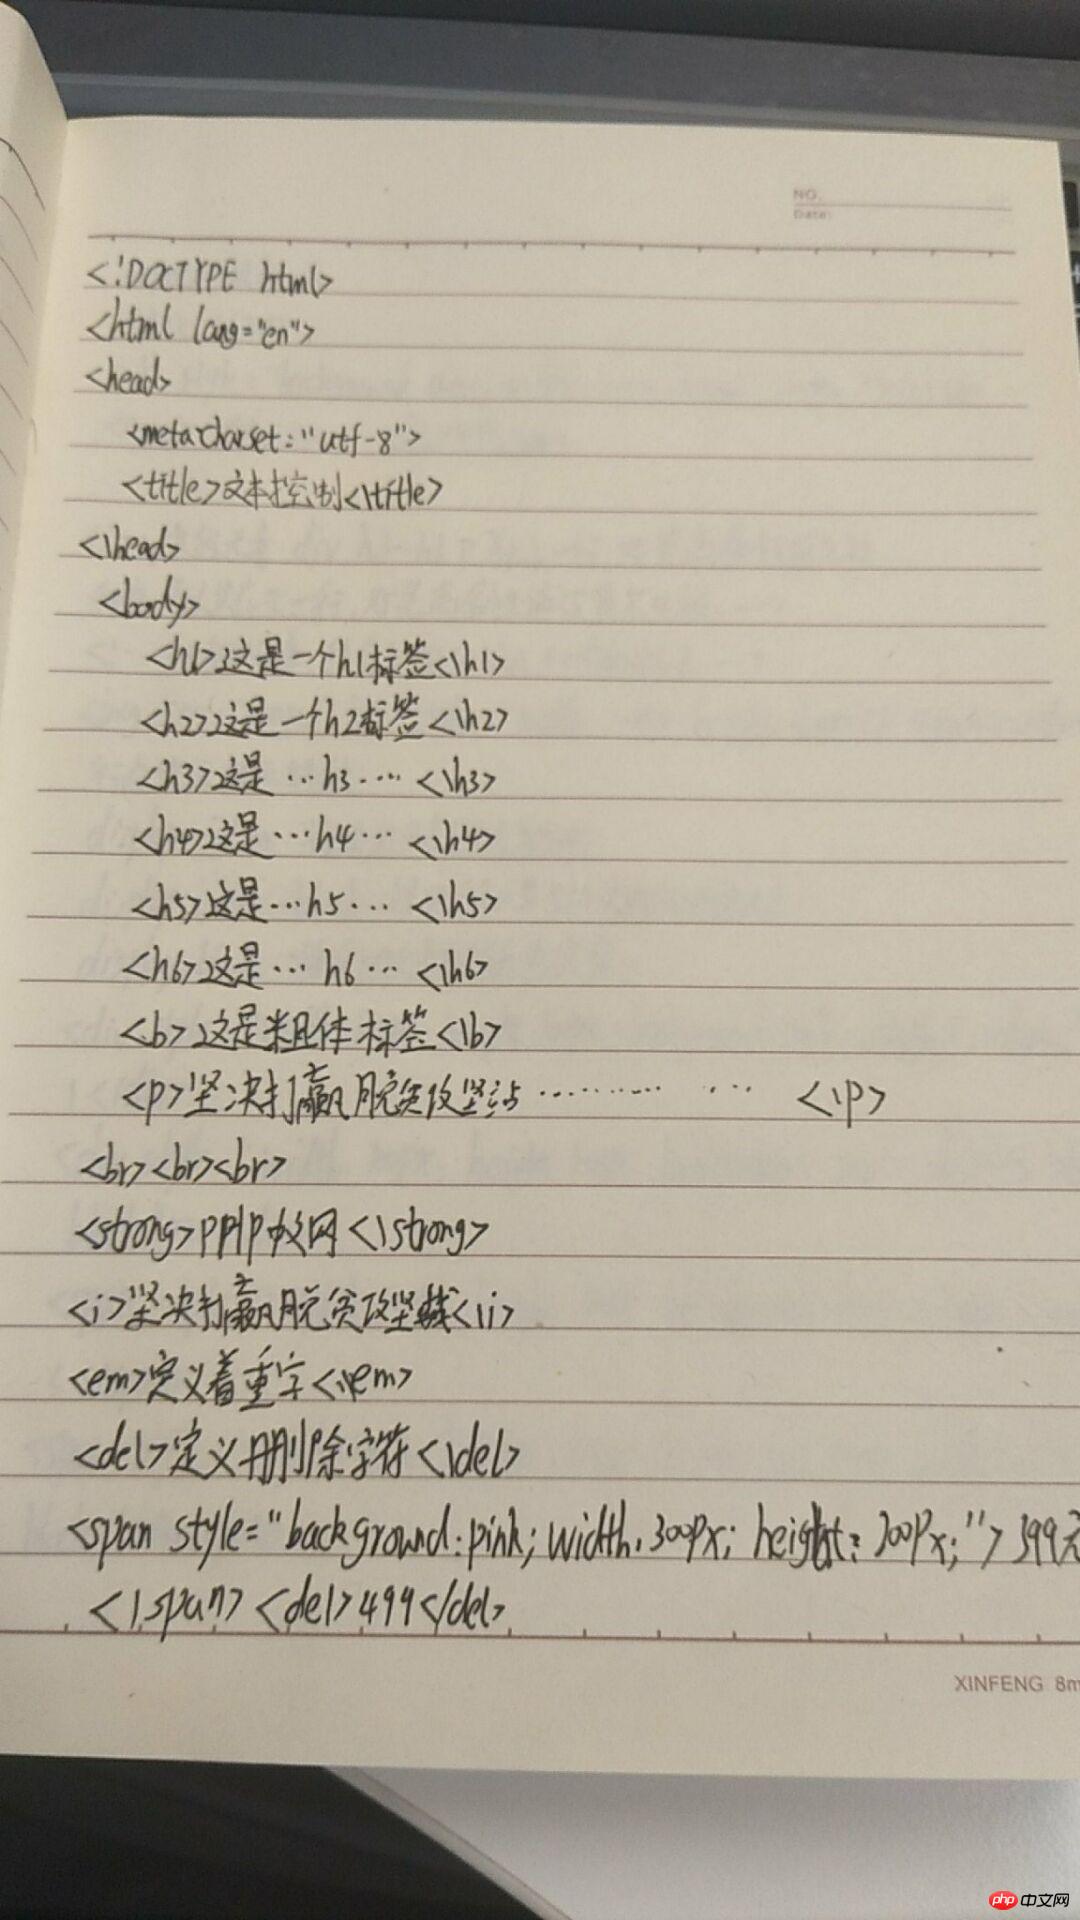 NO.
Date:
<!DOCTYPE html>
<html lang="en">
<head>
<meta charset="utf-8">
<title>文本控制<\title>
<\head>
<body>
<h1>这是一个h1标签<\h1>
<h2>这是一个h2标签<\h2>
<h3>这是…h3…<\h3>
<h4>这是…h4…<\h4>
<h5>这是…h5…<\h5>
<h6>这是…h6…<\h6>
<b>这是粗体标签<\b>
<p>坚决打赢脱贫攻坚战………… … <\p>
<br><br><br>
<strong>php中文网<\strong>
<i>坚决打赢脱贫攻坚战<\i>
<em>定义着重字<\em>
<del>定义删除字符<\del>
<span style="background:pink; width:300px; height:200px;">399元
<\span><del>499</del>
XINFENG 8m
php 中文网